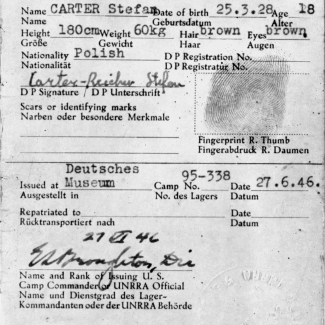 Name CARTER Stefan Date of birth 25.3.28 Age 18
Name Geburtsdatum Alter
Height 180cm Weight 60kg Hair brown Eyes brown
Größe Gewicht Haar Augen
Nationality Polish D P Registration No.
Nationalität D P Registratur No.
Carter-Reicher Stefan
D P Signature / D P Unterschrift
Scars or identifying marks
Narben oder besondere Merkmale
Fingerprint R. Thumb
Fingerabdruck R. Daumen
Deutsches
Issued at Museum Camp No. 95-338 Date 27.6.46.
Ausgestellt in No. des Lagers Datum
Repatriated to Date
Rücktransportiert nach Datum
27 VI 46
Name and Rank of Issuing U. S.
Camp Commander or UNRRA Official
Name und Dienstgrad des Lager-
Kommandanten oder der UNRRA Behörde